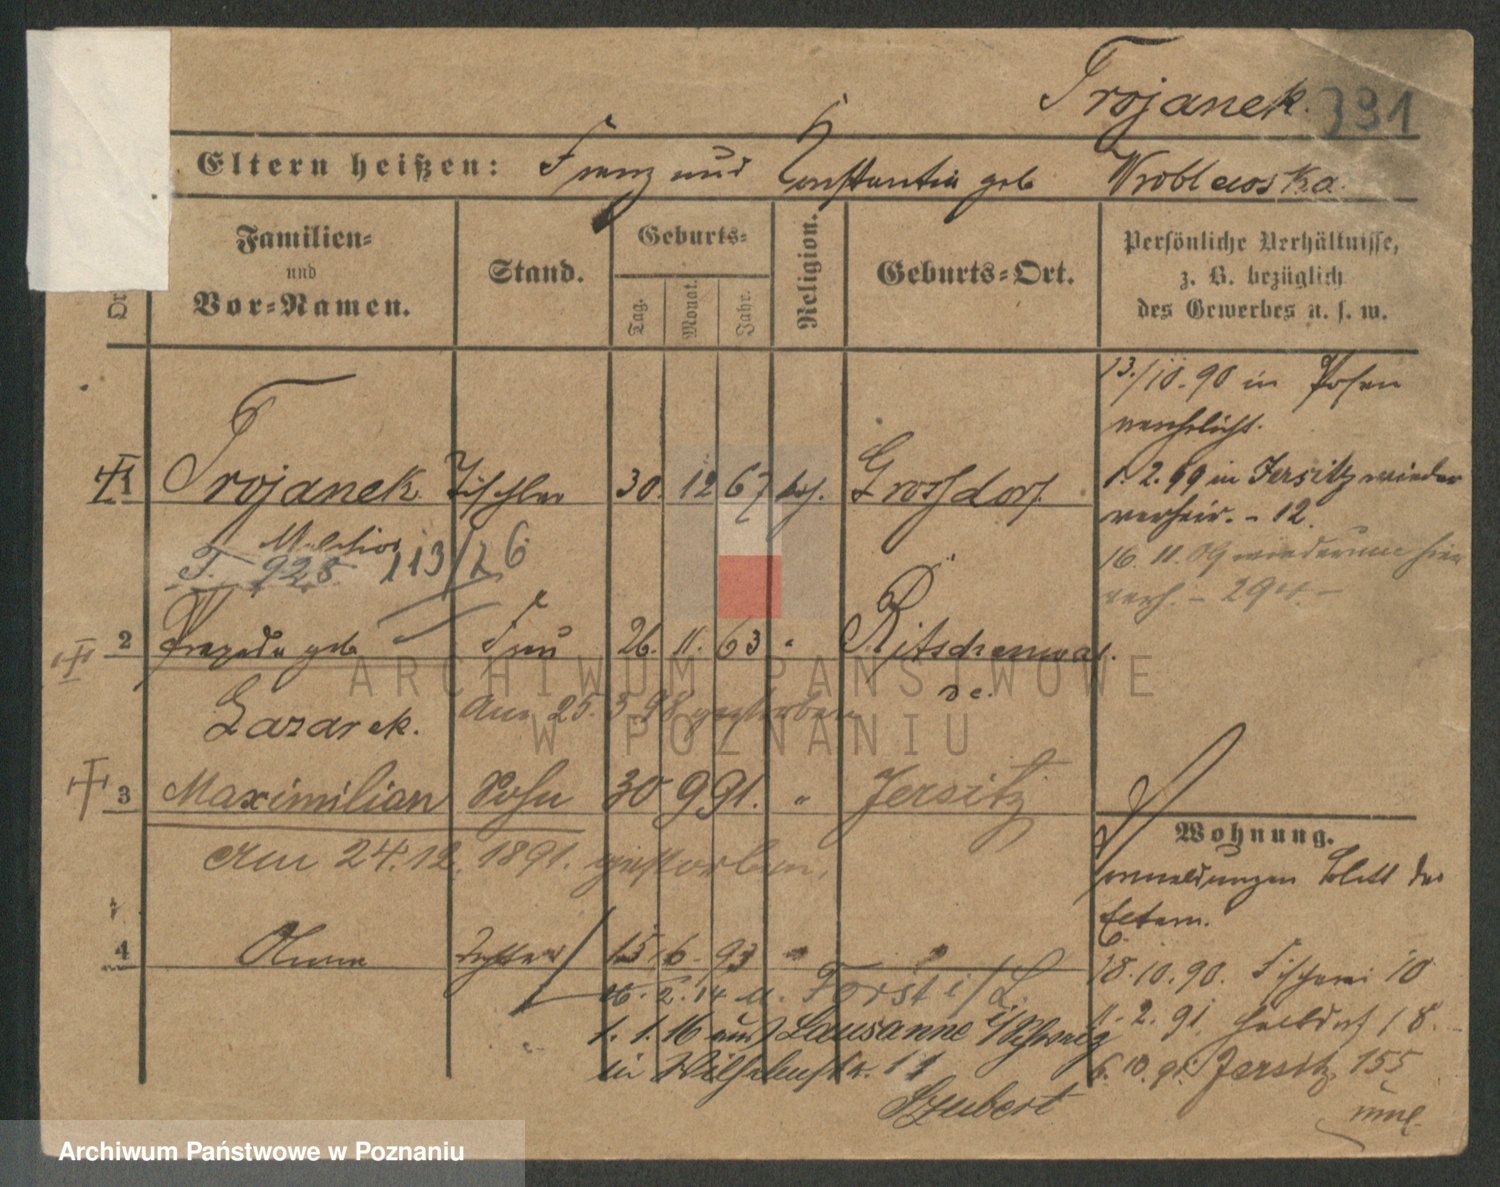 Trojanek. 391
Eltern heißen: Franz und Constantia geb Wroblewska.
Familien=
und
Vor=Namen.
Stand.
Geburts=
Tag.
Monat.
Jahr.
Religion.
Geburts=Ort.
Persönliche Verhältnisse,
z. B. bezüglich
des Gewerbes u. s. w.
13./10.90 in Posen
verehelicht.
1 Trojanek Tischler 30. 12 67 kath. Grossdorf.
1. 2. 99 in Jersitz wieder
verheir. - 12.
Melchior
T. 928 113/26
16. 11. 09 wiederum hier
verh. -
2 Praxeda geb Frau 26. 11. 63 " Ritschenwal
de.
Lazarek.
Am 25. 3 98 gestorben
3 Maximilian Sohn 30 9 91. " Jersitz
Am 24. 12. 1891. gestorben.
Wohnung.
Vormeldungen Blatt der
Eltern.
4 Tochter 15 6. 93 " "
18. 10. 90. Fischerei 10
2. 14 a. Forst i/L.
11. 2. 91. Halbdorf 18.
1. 1. 16 aus Lausanne i/Schweiz
6. 10. 91. Jersitz 155
in Wilhelmstr. 11
Szubert
ARCHIWUM PAŃSTWOWE
W POZNANIU
Archiwum Państwowe w Poznaniu